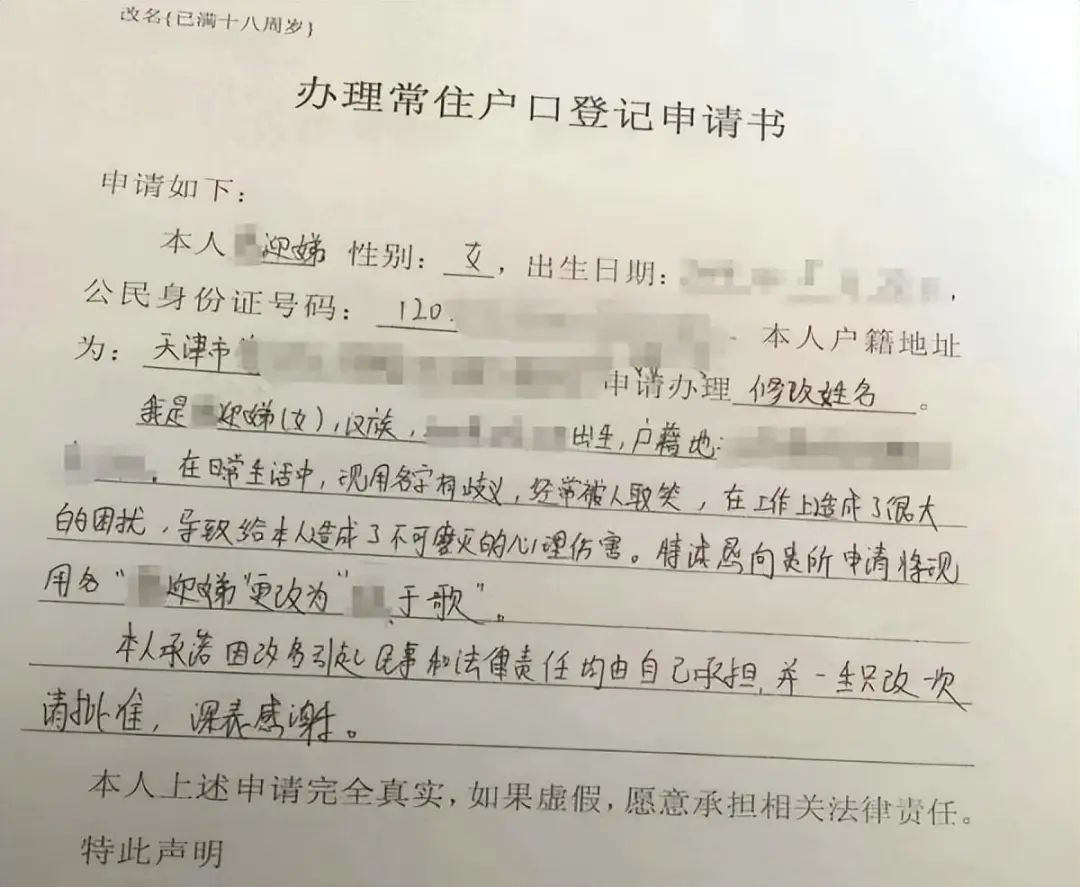 改名{已满十八周岁}
办理常住户口登记申请书
申请如下：
本人 迎娣 性别：女，出生日期：
，
公民身份证号码：120
本人户籍地址
为：天津市
申请办理 修改姓名 。
我是 迎娣(女)，汉族， 出生，户籍地：
。在日常生活中，现用名字有歧义，经常被人取笑，在工作上造成了很大
的困扰，导致给本人造成了不可磨灭的心理伤害。特诚恳向贵所申请将现
用名“ 迎娣”更改为“ 于歌”。
本人承诺因改名引起民事和法律责任均由自己承担，并一生只改一次
请批准，深表感谢。
本人上述申请完全真实，如果虚假，愿意承担相关法律责任。
特此声明